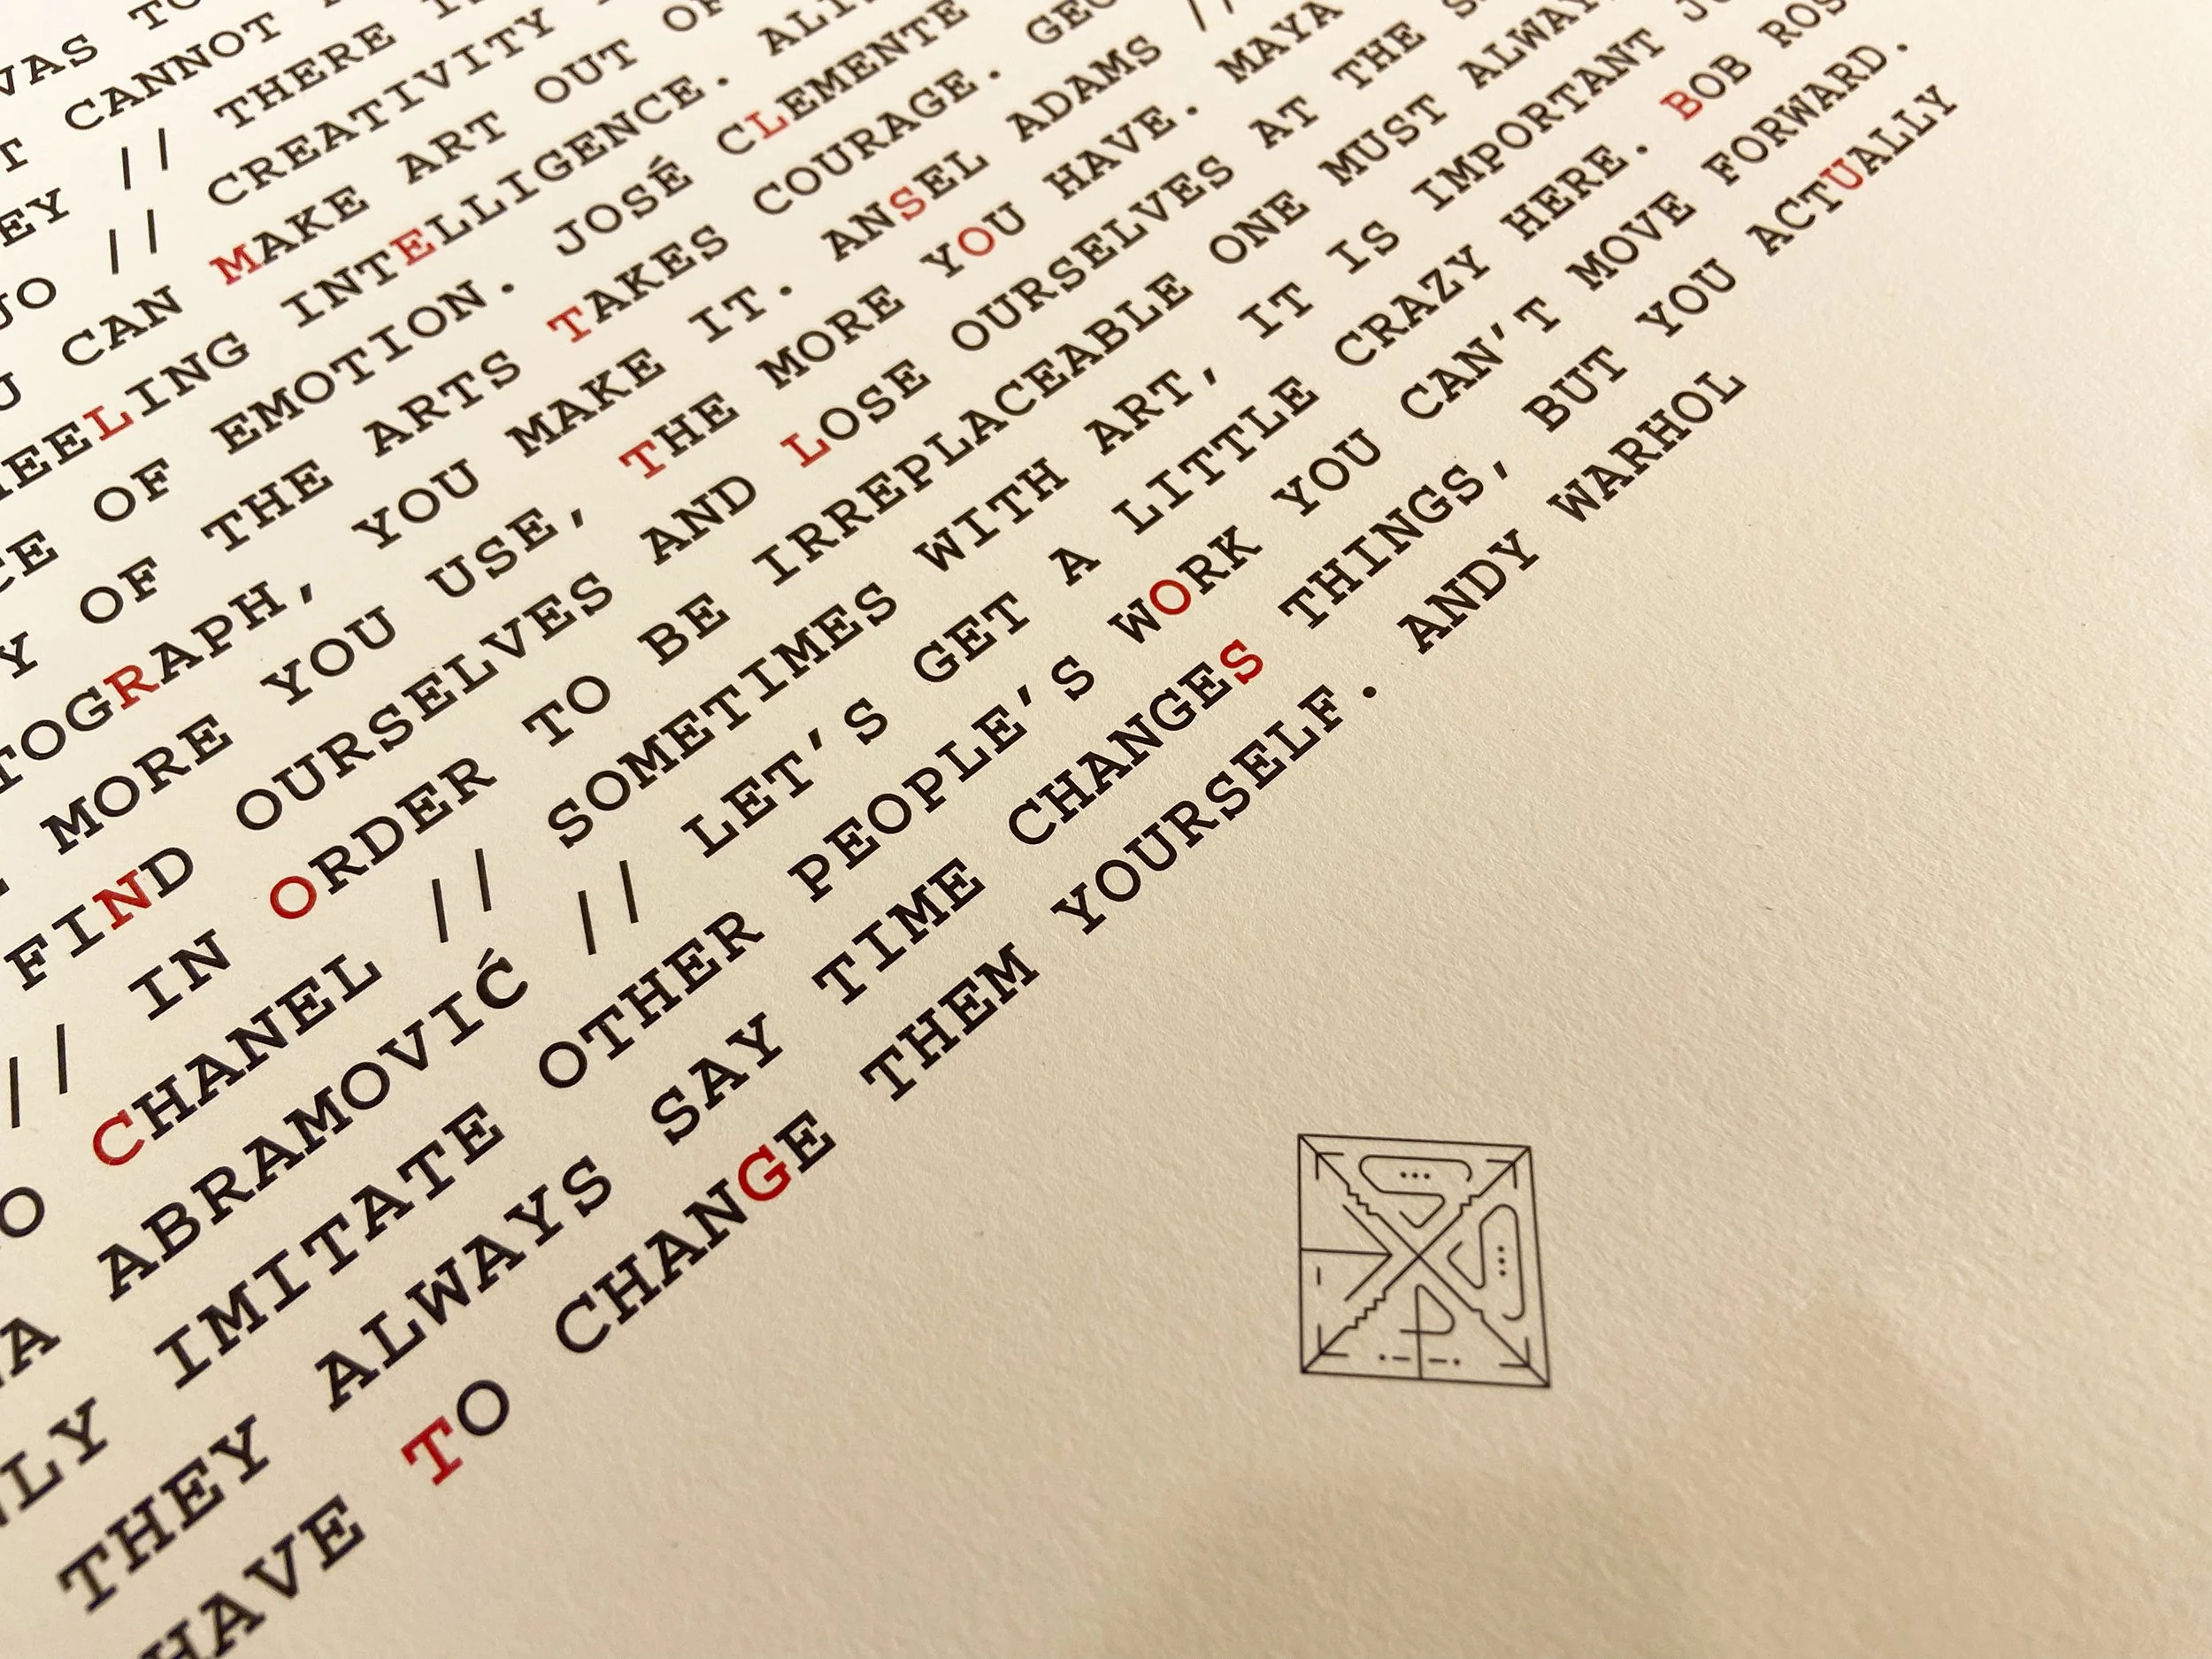 WAS TO
T CANNOT
EY // THERE
UO // CREATIVITY
U CAN MAKE ART OUT OF
EELING INTELLIGENCE. ALI
CE OF EMOTION. JOSÉ CLEMENTE
Y OF THE ARTS TAKES COURAGE. GEO
TOGRAPH, YOU MAKE IT. ANSEL ADAMS //
MORE YOU USE, THE MORE YOU HAVE. MAYA
FIND OURSELVES AND LOSE OURSELVES AT THE S
// IN ORDER TO BE IRREPLACEABLE ONE MUST ALWAY
O CHANEL // SOMETIMES WITH ART, IT IS IMPORTANT JU
A ABRAMOVIĆ // LET'S GET A LITTLE CRAZY HERE. BOB ROS
NLY IMITATE OTHER PEOPLE'S WORK YOU CAN'T MOVE FORWARD.
THEY ALWAYS SAY TIME CHANGES THINGS, BUT YOU ACTUALLY
HAVE TO CHANGE THEM YOURSELF. ANDY WARHOL